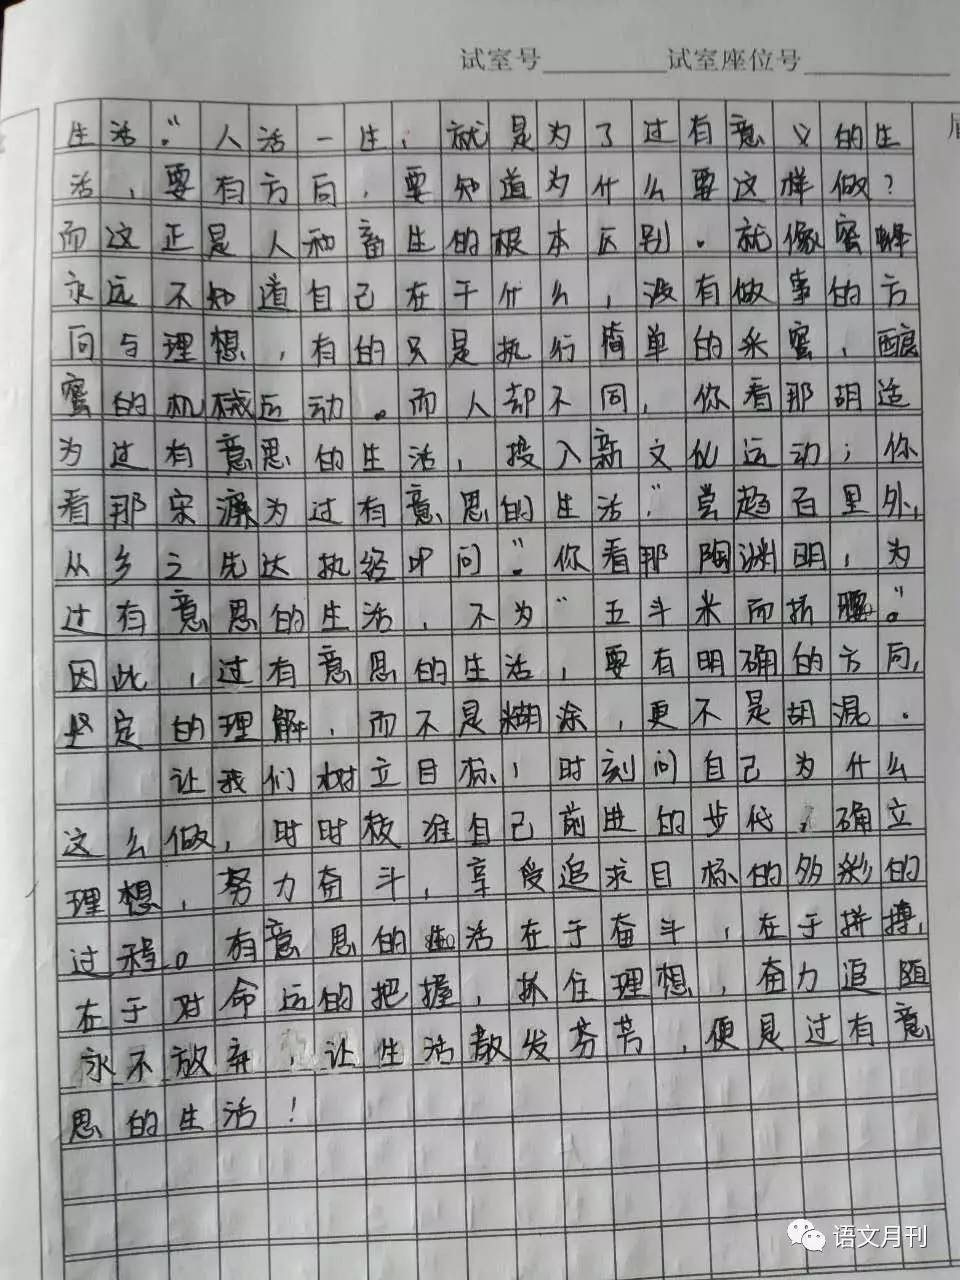 试室号________试室座位号________
生活。”人活一生,就是为了过有意义的生
活,要有方向,要知道为什么要这样做?
而这正是人和畜生的根本区别。就像蜜蜂
永远不知道自己在干什么,没有做事的方
向与理想,有的只是执行简单的采蜜,酿
蜜的机械运动。而人却不同,你看那胡适
为过有意思的生活,投入新文化运动;你
看那宋濂为过有意思的生活,“尝趋百里外,
从乡之先达执经叩问”。你看那陶渊明,为
过有意思的生活,不为“五斗米而折腰。”
因此,过有意思的生活,要有明确的方向,
坚定的理解,而不是糊涂,更不是胡混。
让我们树立目标,时刻问自己为什么
这么做,时时校准自己前进的步伐,确立
理想,努力奋斗,享受追求目标的多彩的
过程。有意思的生活在于奋斗,在于拼搏,
在于对命运的把握,抓住理想,奋力追随
永不放弃,让生活散发芬芳,便是过有意
思的生活!
语文月刊